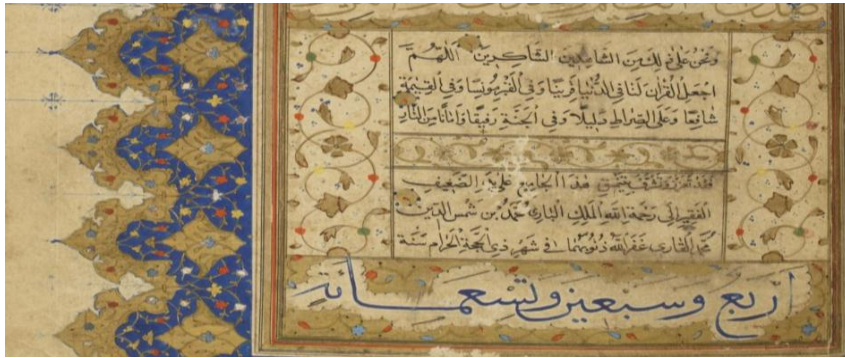 ونحن على ذلك من الشاهدين الشاكرين اللهم
اجعل القرآن لنا في الدنيا قرينا وفي القبر مونسا وفي القيمة
شافعا وعلى الصراط دليلا وفي الجنة رفيقا وامانا من النار
قد تعزز وتشرف بتنميق هذا الجامع على يد الضعيف
الفقير الى رحمة الله الملك الباري محمد بن شمس الدين
محمد القاري غفر الله ذنوبهما في شهر ذي الحجة الحرام سنة
اربع وسبعين وتسعمائة